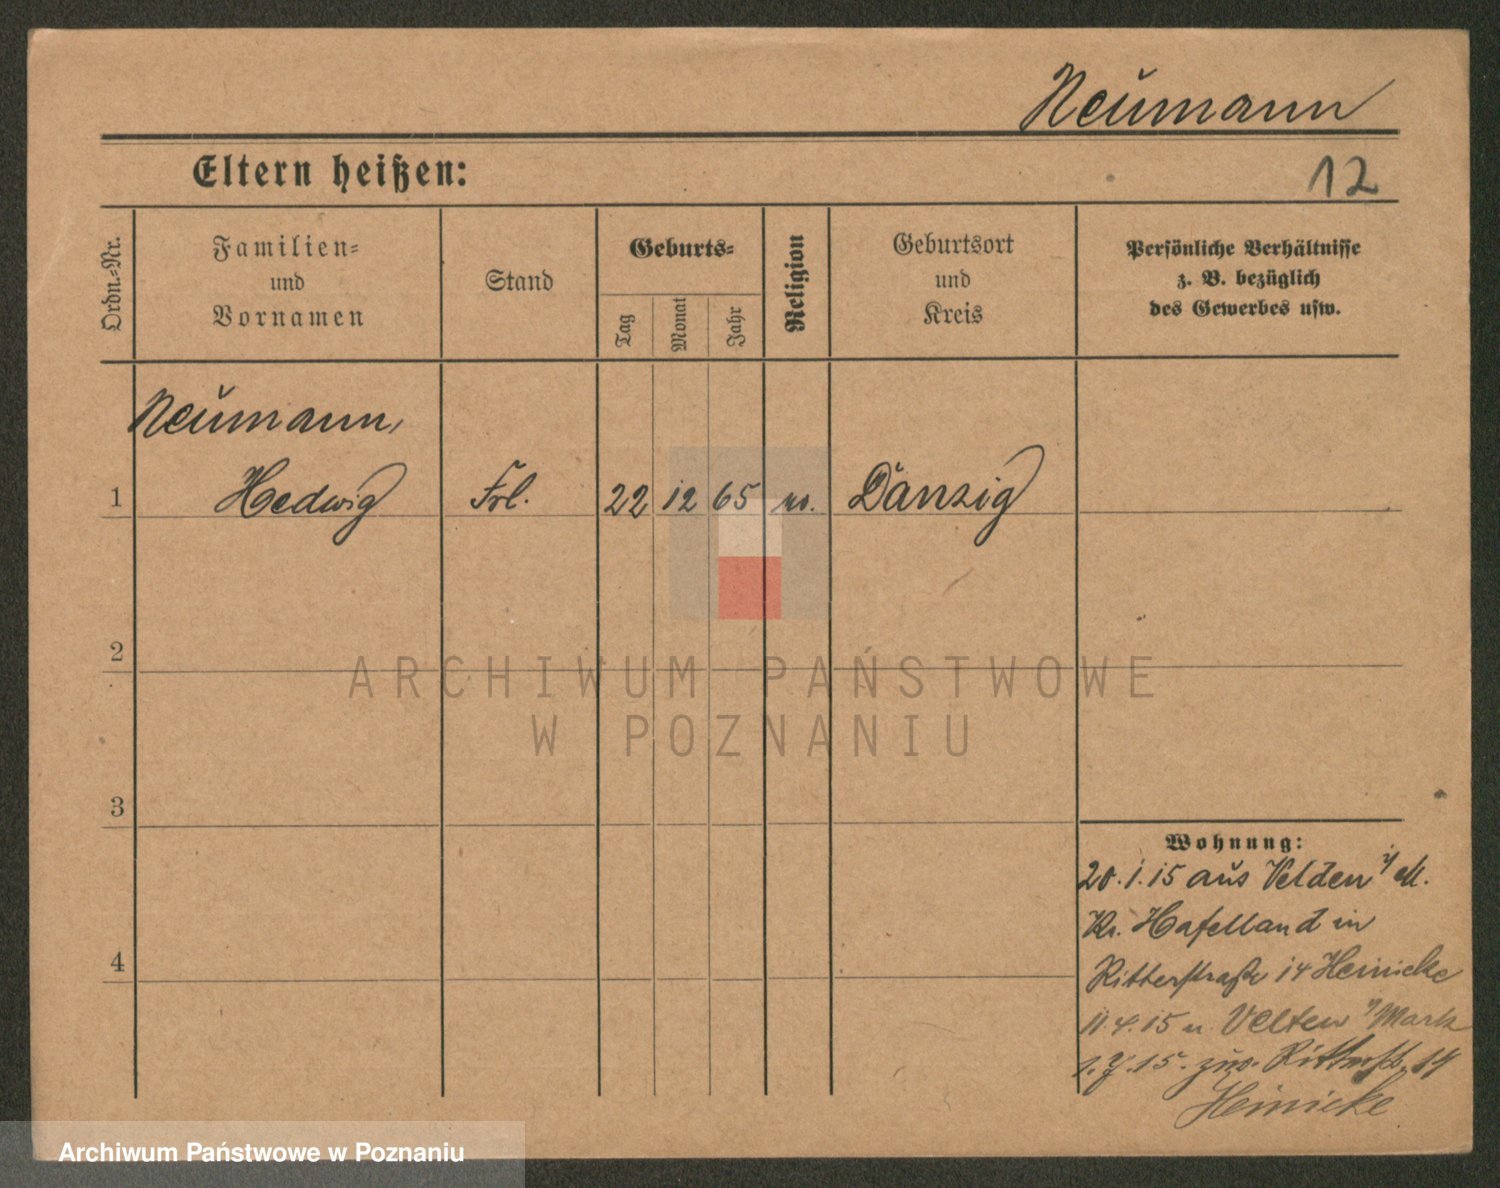 Neumann
Eltern heißen:
12
Ordn.-Nr.
Familien-
und
Vornamen
Stand
Geburts-
Tag
Monat
Jahr
Religion
Geburtsort
und
Kreis
Persönliche Verhältnisse
z. B. bezüglich
des Gewerbes usw.
Neumann,
1 Hedwig Frl. 22 12 65 Danzig
2
3
4
ARCHIWUM PAŃSTWOWE
W POZNANIU
Wohnung:
20.1.15 aus Velden i/M.
Kr. Hafelland in
Ritterstraße 14 Heinicke
11.4.15 n. Velten i/Mark
15. zur. Ritterstr. 14
Heinicke
Archiwum Państwowe w Poznaniu